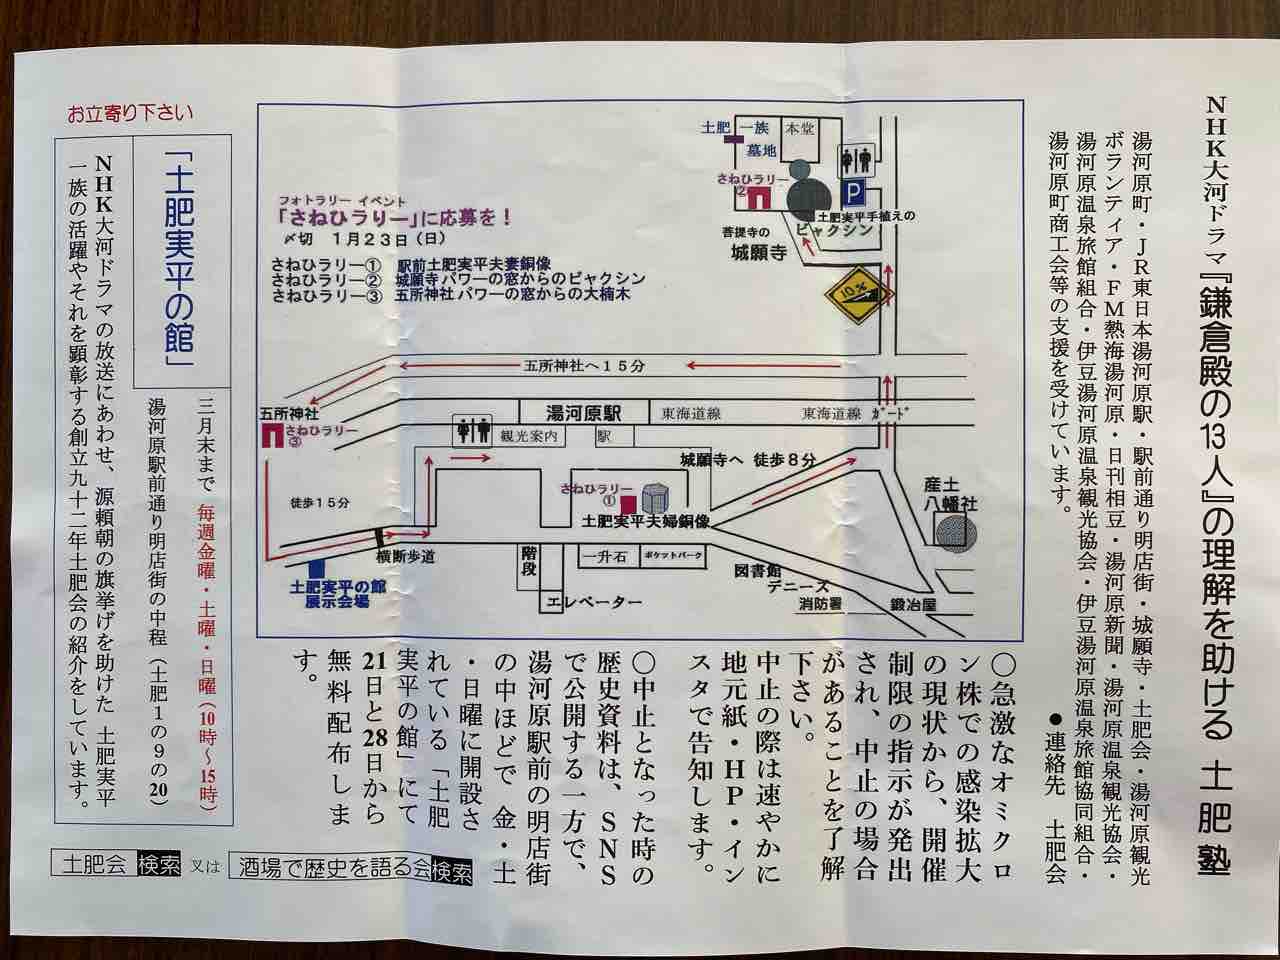 NHK大河ドラマ『鎌倉殿の13人』の理解を助ける 土肥塾
湯河原町・JR東日本湯河原駅・駅前通り明店街・城願寺・土肥会・湯河原観光
ボランティア・FM熱海湯河原・日刊相豆・湯河原新聞・湯河原温泉観光協会・
湯河原温泉旅館組合・伊豆湯河原温泉観光協会・伊豆湯河原温泉旅館協同組合・
湯河原町商工会等の支援を受けています。
●連絡先 土肥会
土肥一族
墓地
本堂
さねひラリー
②
P
土肥実平手植えの
ビャクシン
菩提寺の
城願寺
10%
フォトラリー イベント
「さねひラりー」に応募を!
〆切 1月23日(日)
さねひラリー① 駅前土肥実平夫妻銅像
さねひラリー② 城願寺パワーの窓からのビャクシン
さねひラリー③ 五所神社パワーの窓からの大楠木
五所神社へ15分
五所神社
さねひラリー
③
湯河原駅
東海道線
東海道線 ガード
観光案内
駅
城願寺へ 徒歩8分
徒歩15分
さねひラリー
①
土肥実平夫婦銅像
産土
八幡社
横断歩道
階段
一升石
ポケットパーク
エレベーター
図書館
デニーズ
消防署
鍛冶屋
土肥実平の館
展示会場
〇急激なオミクロ
ン株での感染拡大
の現状から、開催
制限の指示が発出
され、中止の場合
があることを了解
下さい。
中止の際は速やかに
地元紙・HP・イン
スタで告知します。
〇中止となった時の
歴史資料は、SNS
で公開する一方で、
湯河原駅前の明店街
の中ほどで 金・土
・日曜に開設さ
れている「土肥
実平の館」にて
21日と28日から
無料配布しま
す。
お立寄り下さい
「土肥実平の館」
三月末まで 毎週金曜・土曜・日曜(10時～15時)
湯河原駅前通り明店街の中程(土肥1の9の20)
NHK大河ドラマの放送にあわせ、源頼朝の旗挙げを助けた 土肥実平
一族の活躍やそれを顕彰する創立九十二年土肥会の紹介をしています。
土肥会 検索 又は 酒場で歴史を語る会 検索